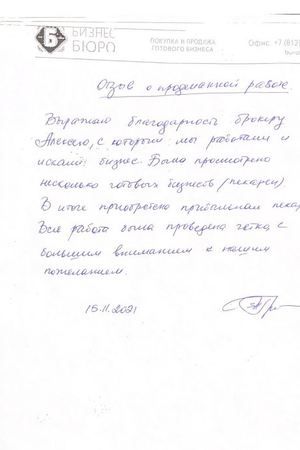 БИЗНЕС
БЮРО
ПОКУПКА И ПРОДАЖА
ГОТОВОГО БИЗНЕСА
Офис: +7 (812)
Отзыв о проделанной работе.
Выражаю благодарность брокеру
Алексею, с которым мы работали и
искали бизнес. Было просмотрено
несколько готовых бизнесов (пекарни)
В итоге приобретена прибыльная пекар
Вся работа была проведена четко, с
большим вниманием к нашим
пожеланием.
15.11.2021